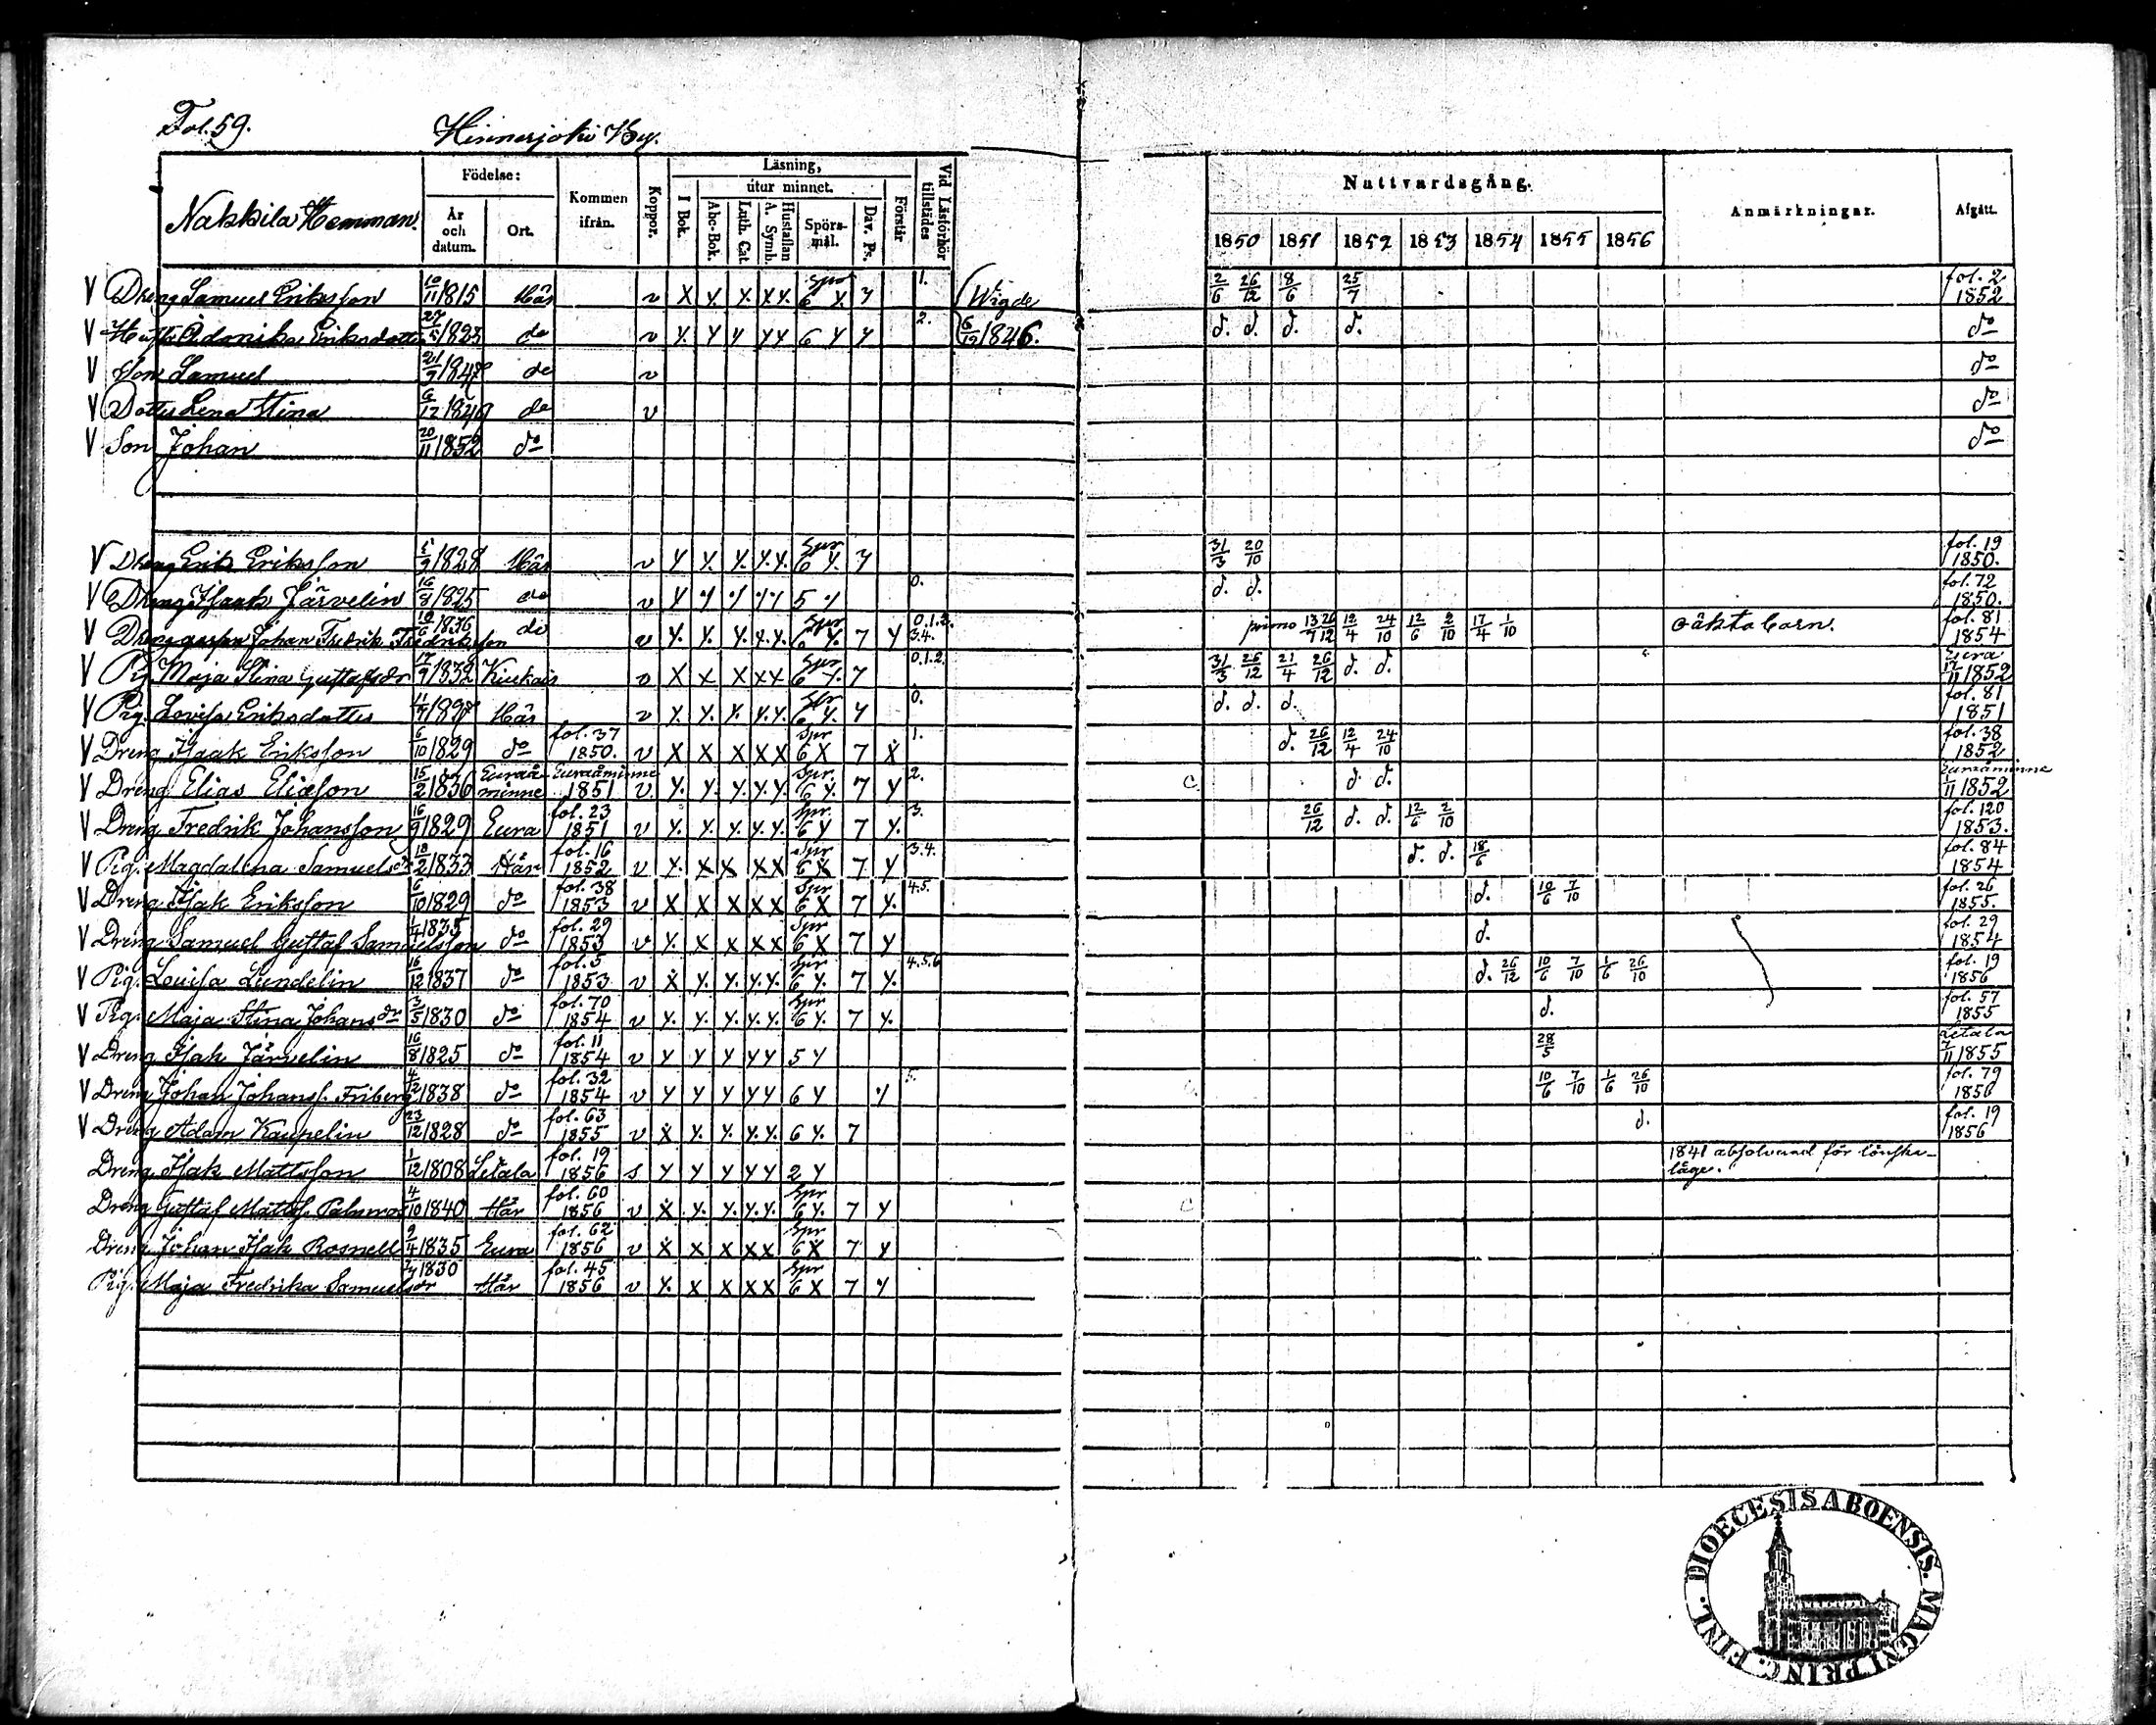 Fol. 59.
Hinnerjoki By.
Nakkila Hemman.
Födelse:
År och datum.
Ort.
Kommen ifrån.
Koppor.
Läsning,
utur minnet.
I Bok.
Abc-Bok.
Luth. Cat.
Hustaflan A. Symb.
Spörsmål.
Dav. Ps.
Förstår
Vid Läsförhör tillstädes
Nattvardsgång.
1850 1851 1852 1853 1854 1855 1856
Anmärkningar.
Afgått.
V Dreng Samuel Eriksson 10/11 1815 Här v X y. y. x y. Spr 6 y. 7 1. Wigde 2/6 26/12 8/6 25/7 fol. 2 1852
V Eriksdotter 1823 do v y. y y y y 6 y y 2. 6/12 1846. d. d. d. d. do
V Son Samuel 21/9 1847 do v do
V Dotter Lena Stina 6/12 1849 do v do
V Son Johan 20/11 1852 do do
V Dreng Erik Eriksson 1828 Här v y y. y. y. y. Spr 6 y. 7 31/3 20/10 fol. 19 1850.
V Dreng Isaak Järvelin 16/8 1825 do v y y y y y 5 y 0. d. d. fol. 72 1850.
V Johan Fredrik Fredriksson 1836 do v y. y. y. x. x. Spr 6 y. 7 y 0.1.2. 3.4. primo 13/7 26/12 12/4 24/10 12/6 2/10 17/4 1/10 oäkta barn. fol. 81 1854
V Pig. Maja Stina Gustafsdr 17/9 1832 Kiukais v X x X x x Spr 6 y. 7 0.1.2. 31/3 26/12 21/4 26/12 d. d. Eura 1852
V Pig. Lovisa Eriksdotter Här v y. y. y. y. y. Spr 6 y. y 0. d. d. d. fol. 81 1851
V Dreng Isaak Eriksson 6/10 1829 do fol. 37 1850. v X X X X X Spr 6 X 7 X 1. d. 26/12 12/4 24/10 fol. 38 1852
V Dreng Elias Eliasson 15/2 1836 Euraåminne Euraåminne 1851 v y. y. y. y. y. Spr. 6 y. 7 y 2. d. d. Euraåminne 1/11 1852
V Dreng Fredrik Johansson 16/9 1829 Eura fol. 23 1851 v y. y. y. y. y. Spr. 6 y 7 y. 3. 26/12 d. d. 12/6 2/10 fol. 120 1853.
V Pig. Magdalena Samuelsdr 18/2 1833 Här fol. 16 1852 v y. X X X X Spr 6 X 7 y 3.4. d. d. 18/6 fol. 84 1854
V Dreng Isak Eriksson 6/10 1829 do fol. 38 1853 v X X X X X Spr 6 X 7 y. 4.5. d. 10/6 7/10 fol. 26 1855.
V Dreng Samuel Gustaf Samuelsson 1/4 1835 do fol. 29 1853 v y. x x x x Spr 6 X 7 y d. fol. 29 1854
V Pig. Lovisa Lundelin 16/12 1837 do fol. 5 1853 v X y. y. y. y. Spr 6 y. 7 y. 4.5.6 d. 26/12 10/6 7/10 1/6 26/10 fol. 19 1856
V Pig. Maja Stina Johansdr 3/5 1830 do fol. 70 1854 v y. y. y. y. y. Spr 6 y. 7 y. d. fol. 57 1855
V Dreng Isak Järvelin 16/8 1825 do fol. 11 1854 v y y y y y 5 y 28/5 Letala 7/11 1855
V Dreng Johan Johanss. Friberg 4/12 1838 do fol. 32 1854 v y y y y y 6 y y 5. 10/6 7/10 1/6 26/10 fol. 79 1856
V Dreng Adam Kaupelin 23/12 1828 do fol. 63 1855 v X y. y. y. y. 6 y. 7 d. fol. 19 1856
Dreng Isak Mattsson 1/12 1808 Letala fol. 19 1856 s y y y y y 2 y 1841 absolverad för lönskaläge.
Dreng Gustaf Matts. Palmroos 4/10 1840 Här fol. 60 1856 v X y. y. y. y. Spr 6 y. 7 y
Dreng Johan Isak Rosnell 9/4 1835 Eura fol. 62 1856 v X X X X X Spr 6 X 7 y
Pig. Maja Fredrika Samuelsdr 1830 Här fol. 45 1856 v y. X X X X Spr 6 X 7 y
DIOECESIS ABOENSIS. MAGNI PRINC. FINL.